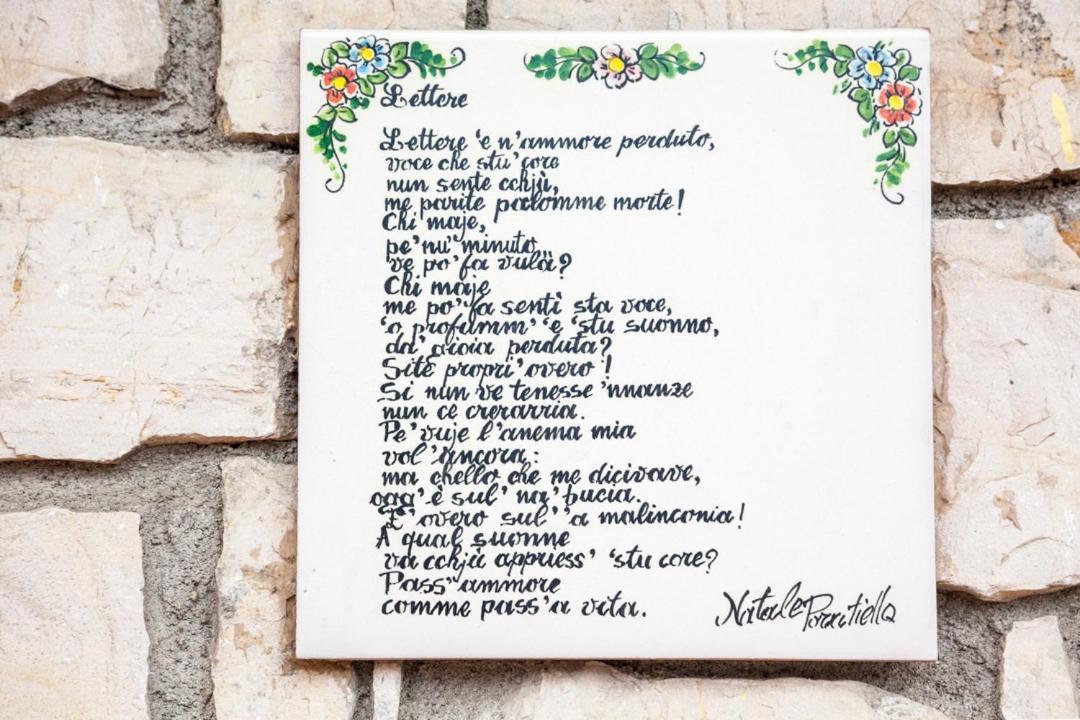 Lettere
Lettere 'e n'ammore perduto,
voce che stu' core
nun sente cchjù,
me parite palomme morte!
Chi maje,
pe' nu' minuto
ve po' fa vulà?
Chi maje
me po' fa sentì sta voce,
'o profumm' 'e 'stu suonno,
da' gioia perduta?
Site propri' overo!
Si nun ve tenesse 'nnanze
nun ce crerarria.
Pe' vuje l'anema mia
vol' ancora:
ma chello che me dicivave,
ogg' è sul' na' bucia.
E' overo sul' 'a malinconia!
A qual suonne
va cchjù appriess' 'stu core?
Pass' ammore
comme pass' 'a vita.
Natale